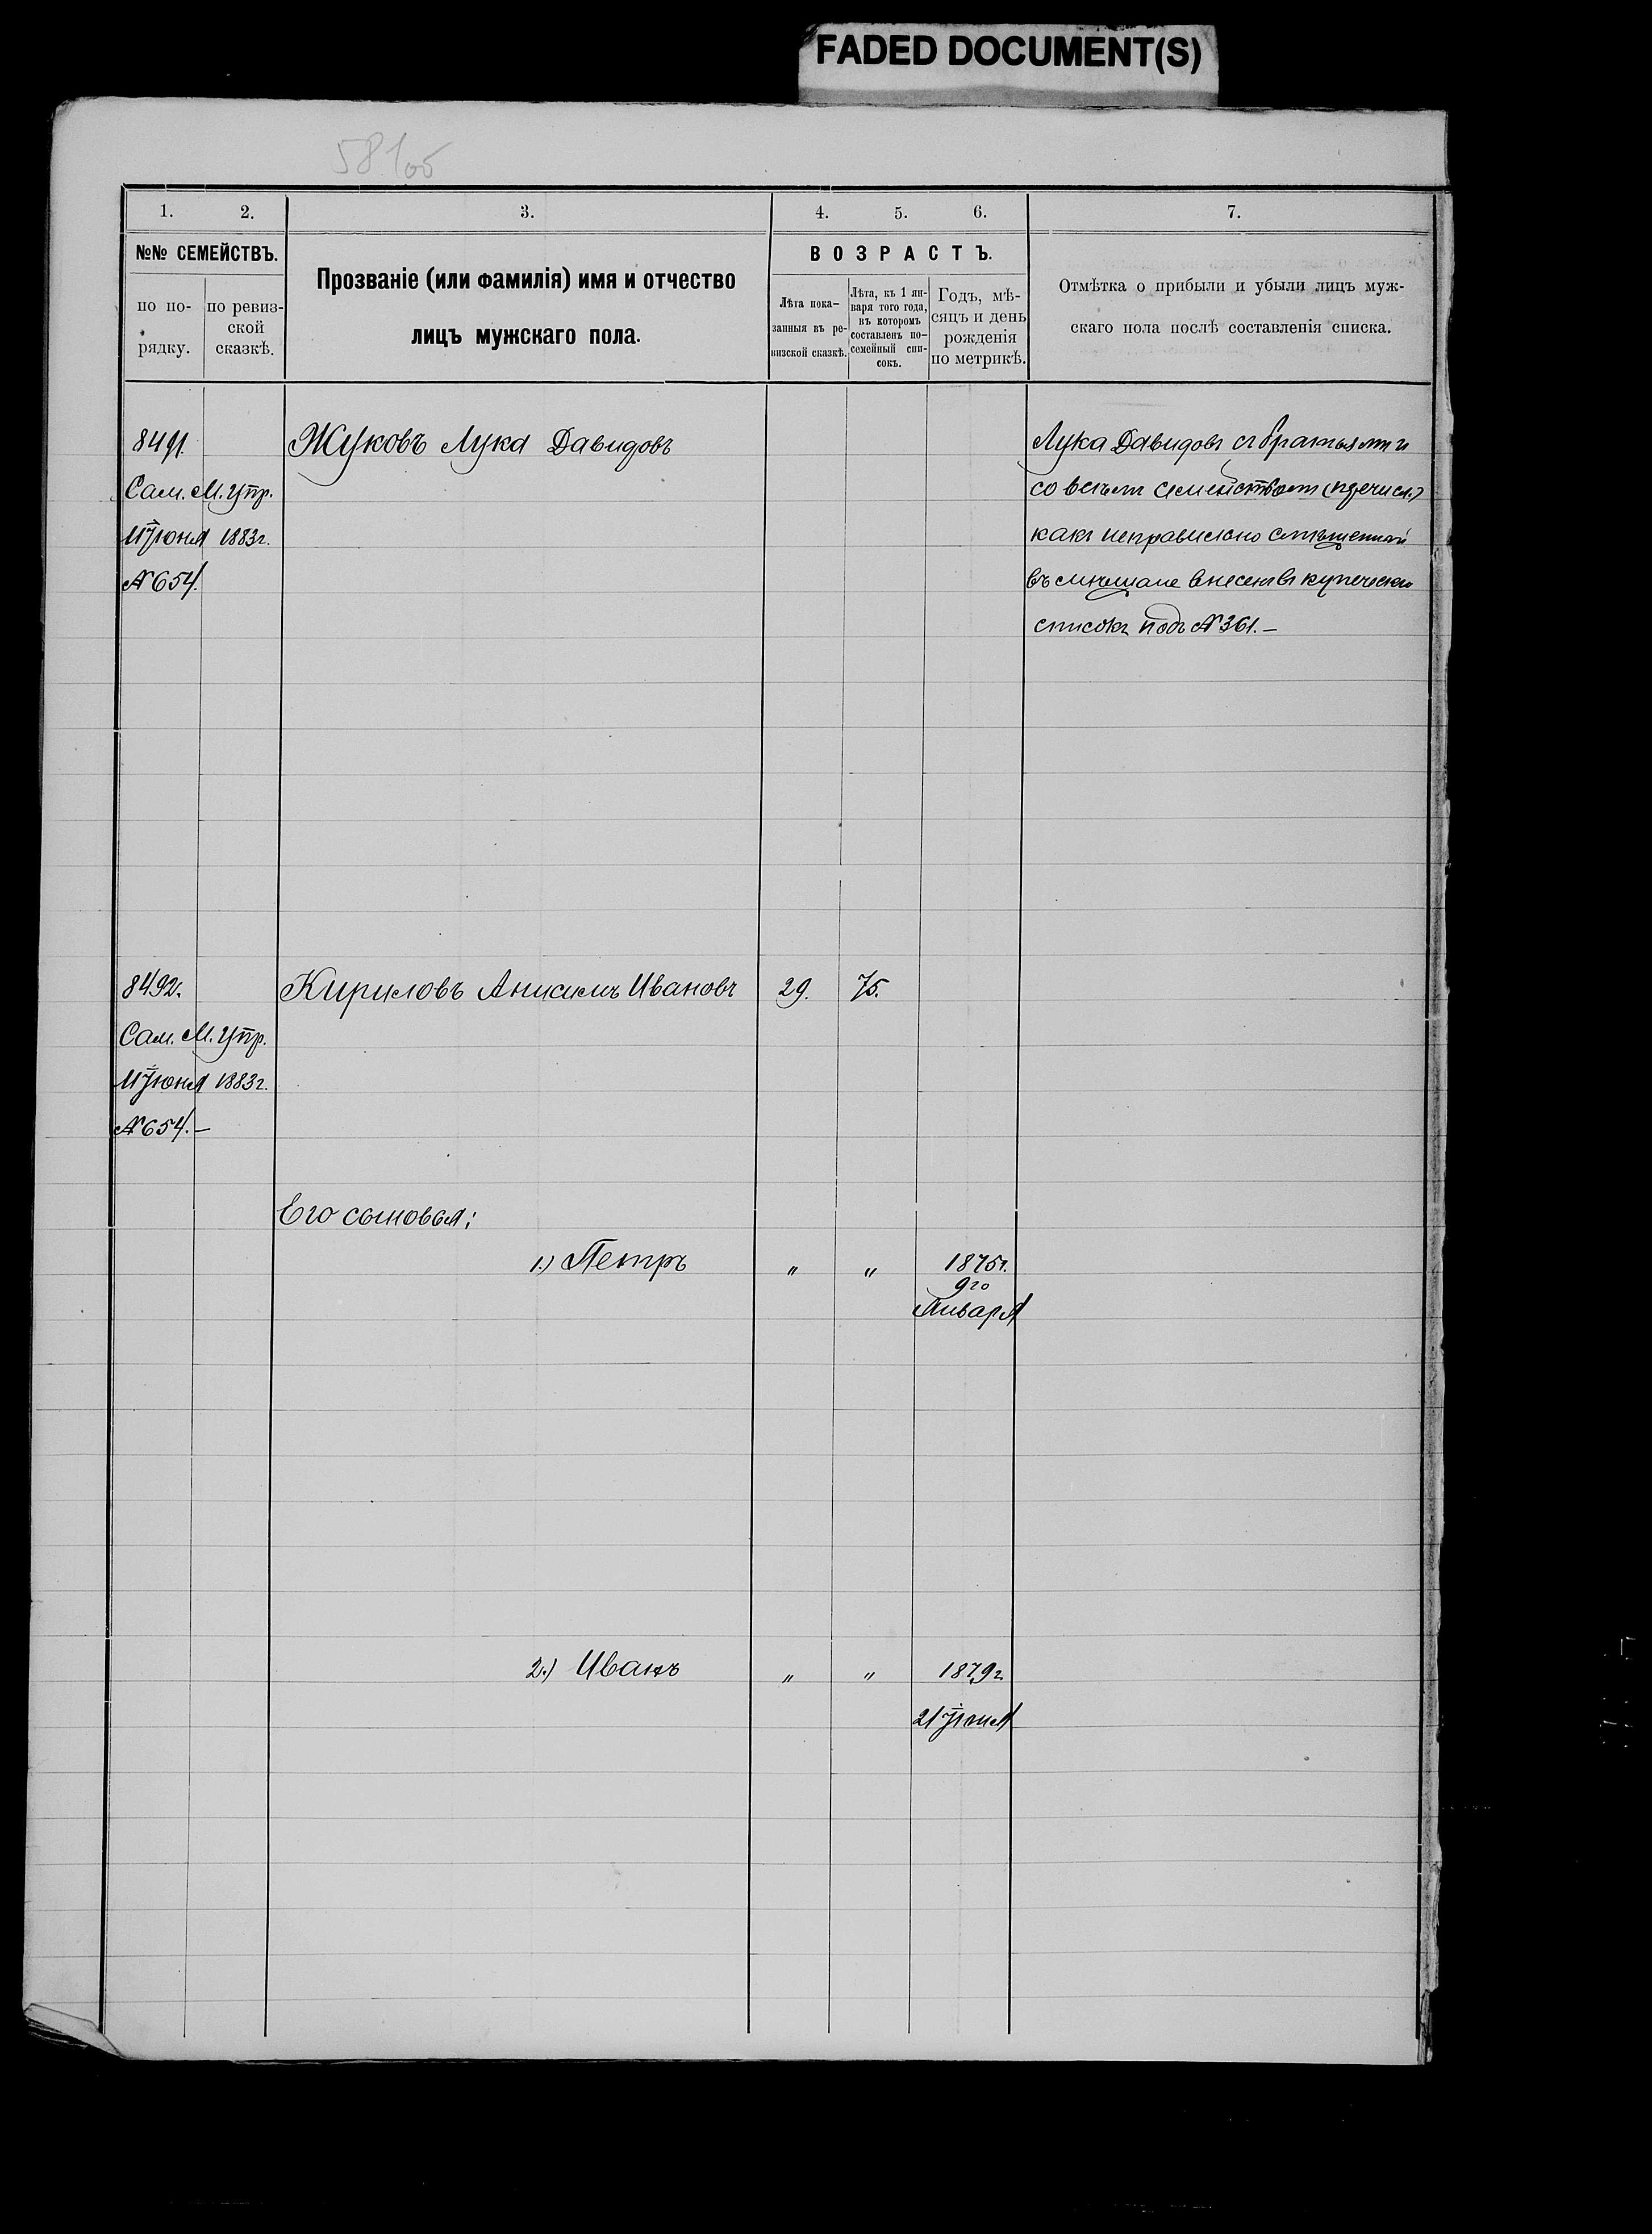 FADED DOCUMENT(S)
58 100
1. 2. 3. 4. 5. 6. 7.
№№ СЕМЕЙСТВЪ.
по по-
рядку.
по ревиз-
ской
сказкѣ.
Прозваніе (или фамилія) имя и отчество
лицъ мужскаго пола.
ВОЗРАСТЪ.
Лѣта пока-
занныя въ ре-
визской сказкѣ.
Лѣта, къ 1 ян-
варя того года,
въ которомъ
составленъ по-
семейный спи-
сокъ.
Годъ, мѣ-
сяцъ и день
рожденія
по метрикѣ.
Отмѣтка о прибыли и убыли лицъ муж-
скаго пола послѣ составленія списка.
8491.
Сам. М. Упр.
11 Іюня 1883 г.
№ 654.
Жуковъ Лука Давидовъ
Лука Давидовъ съ братьями и
со всѣмъ семействомъ
какъ неправильно
въ мѣщане внесенъ въ купеческій
списокъ подъ № 361.—
8492.
Сам. М. Упр.
11 Іюня 1883 г.
№ 654.—
Кириловъ Анисимъ Ивановъ 29. 75.
Его сыновья:
1.) Петръ " " 1875 г.
9го
Января
2.) Иванъ " " 1879 г.
21 Іюня